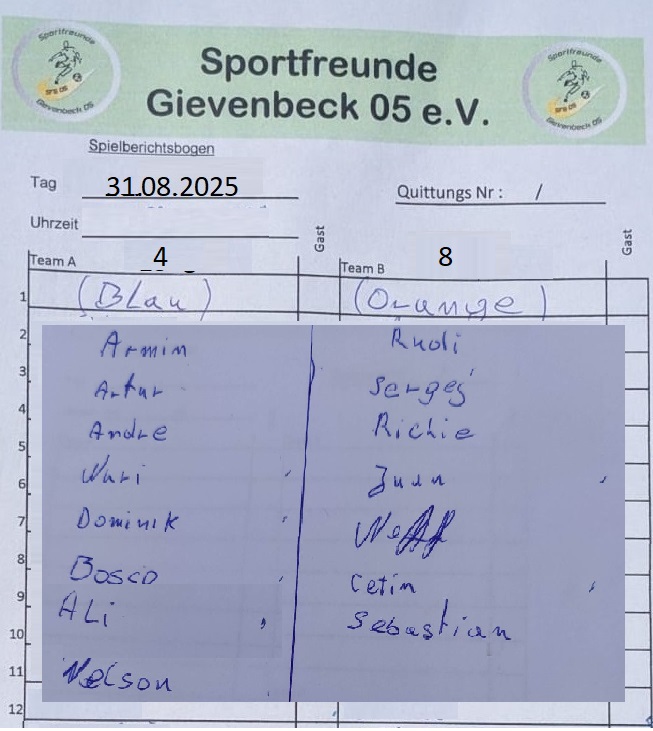 Sportfreunde
SFG 05
Gievenbeck 05
Sportfreunde
Gievenbeck 05 e.V.
Sportfreunde
SFG 05
Gievenbeck 05
Spielberichtsbogen
Tag 31.08.2025 Quittungs Nr : /
Uhrzeit
Gast Gast
Team A 4 Team B 8
1 (Blau) (Orange)
2 Armin Rudi
3 Artur Sergej
4 Andre Richie
5
6 Wari Juan
7 Dominik
8 Bosco Cetin
9 ALi Sebastian
10
11 Nelson
12